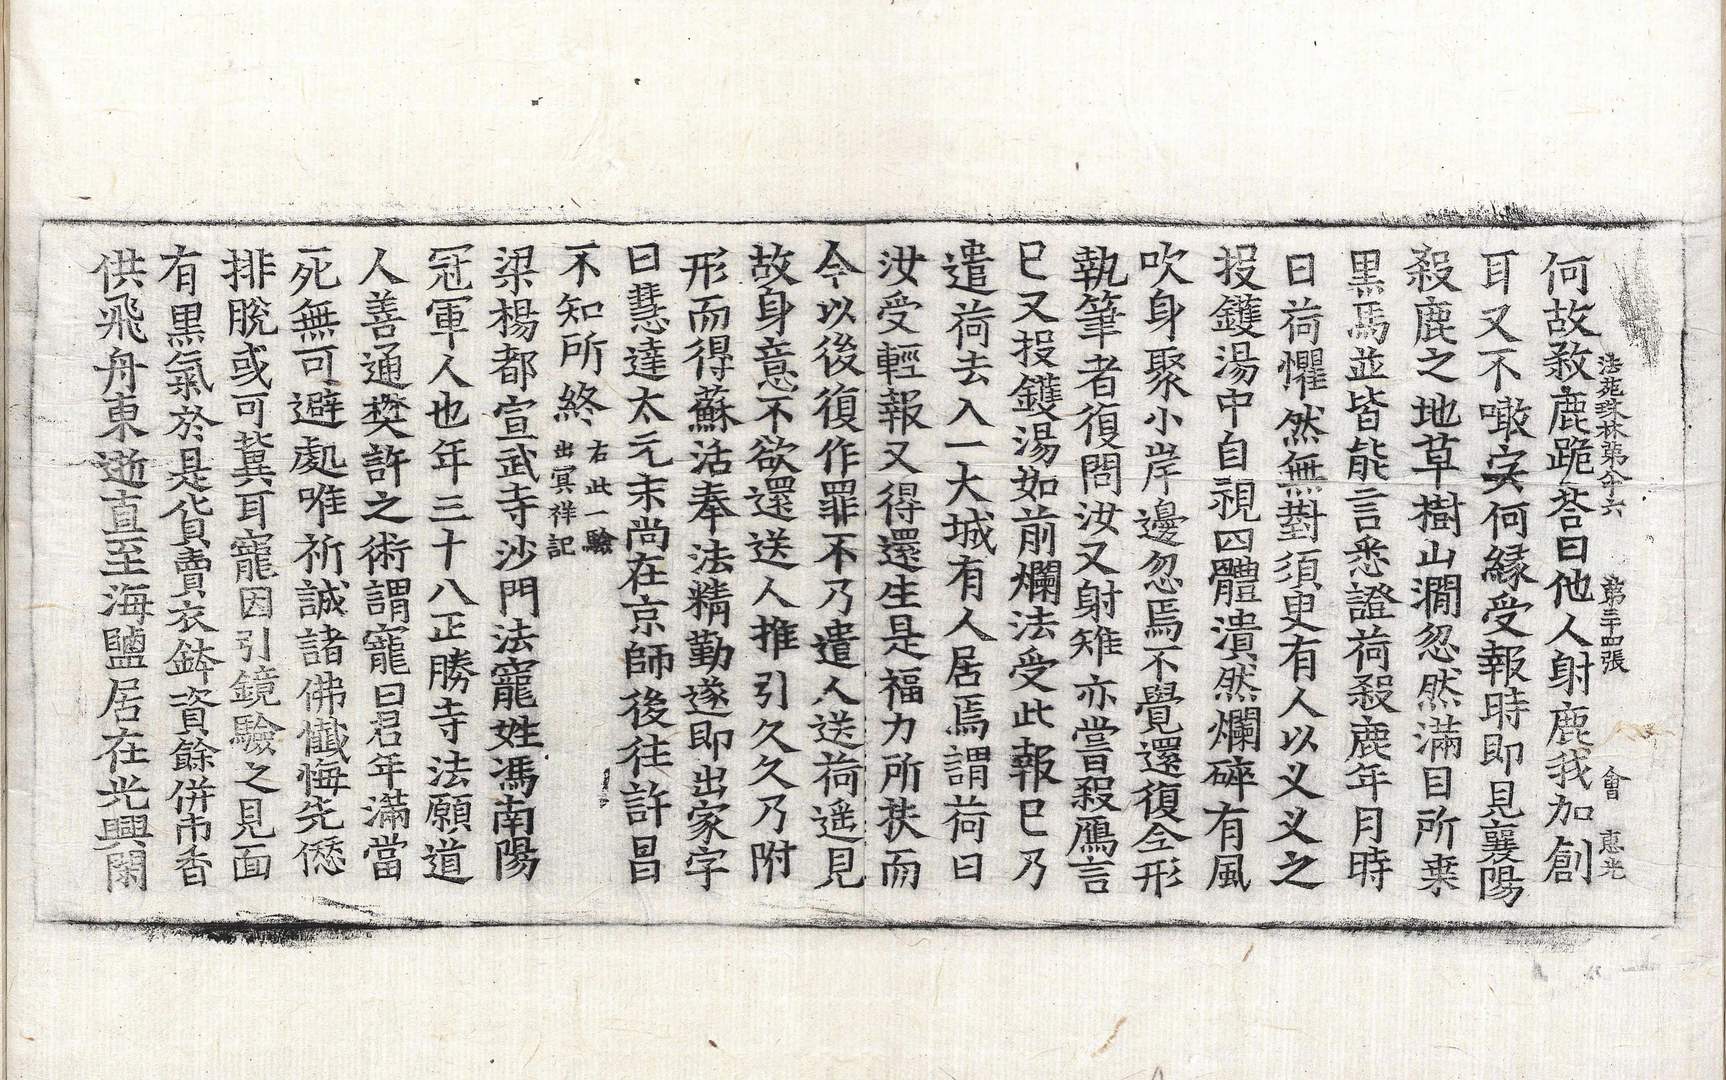 法苑珠林第八十六 第三十四張 會 惠光
何故殺鹿跪荅曰他人射鹿我加創
耳又不噉肉何緣受報時即見襄陽
殺鹿之地草樹山澗忽然滿目所乘
黑馬並皆能言悉證荷殺鹿年月時
日荷懼然無對須臾有人以乂乂之
投鑊湯中自視四體潰然爛碎有風
吹身聚小岸邊忽焉不覺還復全形
執筆者復問汝又射雉亦嘗殺鴈言
已又投鑊湯如前爛法受此報已乃
遣荷去入一大城有人居焉謂荷曰
汝受輕報又得還生是福力所扶而
今以後復作罪不乃遣人送荷遥見
故身意不欲還送人推引久久乃附
形而得蘇活奉法精勤遂即出家字
曰慧達太元末尚在京師後往許昌
不知所終 右此一驗出冥祥記
梁楊都宣武寺沙門法寵姓馮南陽
冠軍人也年三十八正勝寺法願道
人善通樊許之術謂寵曰君年滿當
死無可避處唯祈誠諸佛懺悔先愆
排脫或可冀耳寵因引鏡驗之見面
有黑氣於是貨賣衣鉢資餘併市香
供飛舟東逝直至海鹽居在光興閑